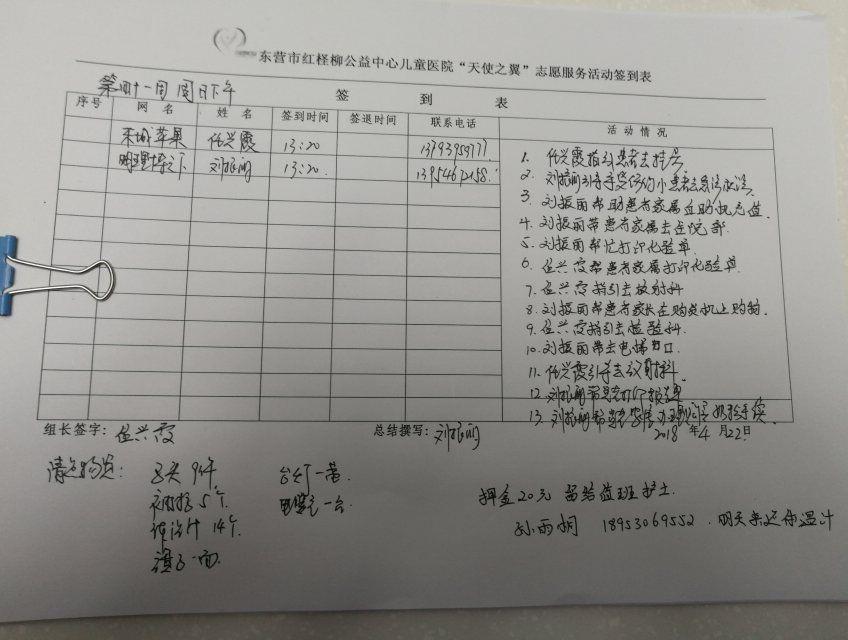 东营市红柽柳公益中心儿童医院“天使之翼”志愿服务活动签到表
第四十一周 周日下午
签 到 表
序号 网 名 姓 名 签到时间 签退时间 联系电话 活动情况
苹果 任兴霞 13:20
刘振丽 13:20
1. 任兴霞指引患者去挂号
2. 刘振丽引导手受伤的小患者去
3. 刘振丽帮助患者家属在自助机充值.
4. 刘振丽带患者家属去住院部.
5. 刘振丽帮忙打印化验单.
6. 任兴霞帮患者家属打印化验单.
7. 任兴霞指引去放射科
8. 刘振丽帮患者家长在购货机上购物.
9. 任兴霞指引去检验科.
10. 刘振丽带去电梯口.
11. 任兴霞引导去放射科.
12. 刘振丽帮患者打印报告单
13. 刘振丽帮患者家属办理 手续.
组长签字: 任兴霞 总结撰写: 刘振丽 2018 年 4 月 22 日
清点物资: 马夹 9件 台灯一带.
5个. 一台.
体温计 14个.
旗子一面.
押金20元 留给值班护士
孙雨桐 18953069552. 明天来还体温计